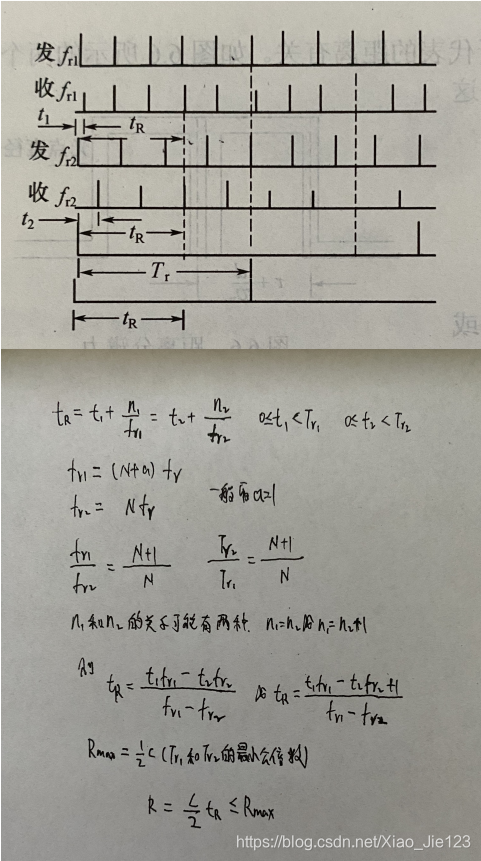 代表的距离有关。如图6.6所示的两个
这
发 fr1
收 fr1
t1 tR
发 fr2
收 fr2
t2 tR
Tr
tR
或
tR = t1 + n1/fr1 = t2 + n2/fr2 0≤t1<Tr1 0≤t2<Tr2
fr1 = (N+a) fr
一般取a=1
fr2 = N fr
fr1/fr2 = (N+1)/N Tr2/Tr1 = (N+1)/N
n1和n2的关系可能有两种. n1=n2或n1=n2+1
则 tR = (t1fr1 - t2fr2)/(fr1 - fr2) 或 tR = (t1fr1 - t2fr2+1)/(fr1 - fr2)
Rmax = 1/2 c (Tr1和Tr2的最小公倍数)
R = c/2 tR ≤ Rmax
https://blog.csdn.net/Xiao_Jie123